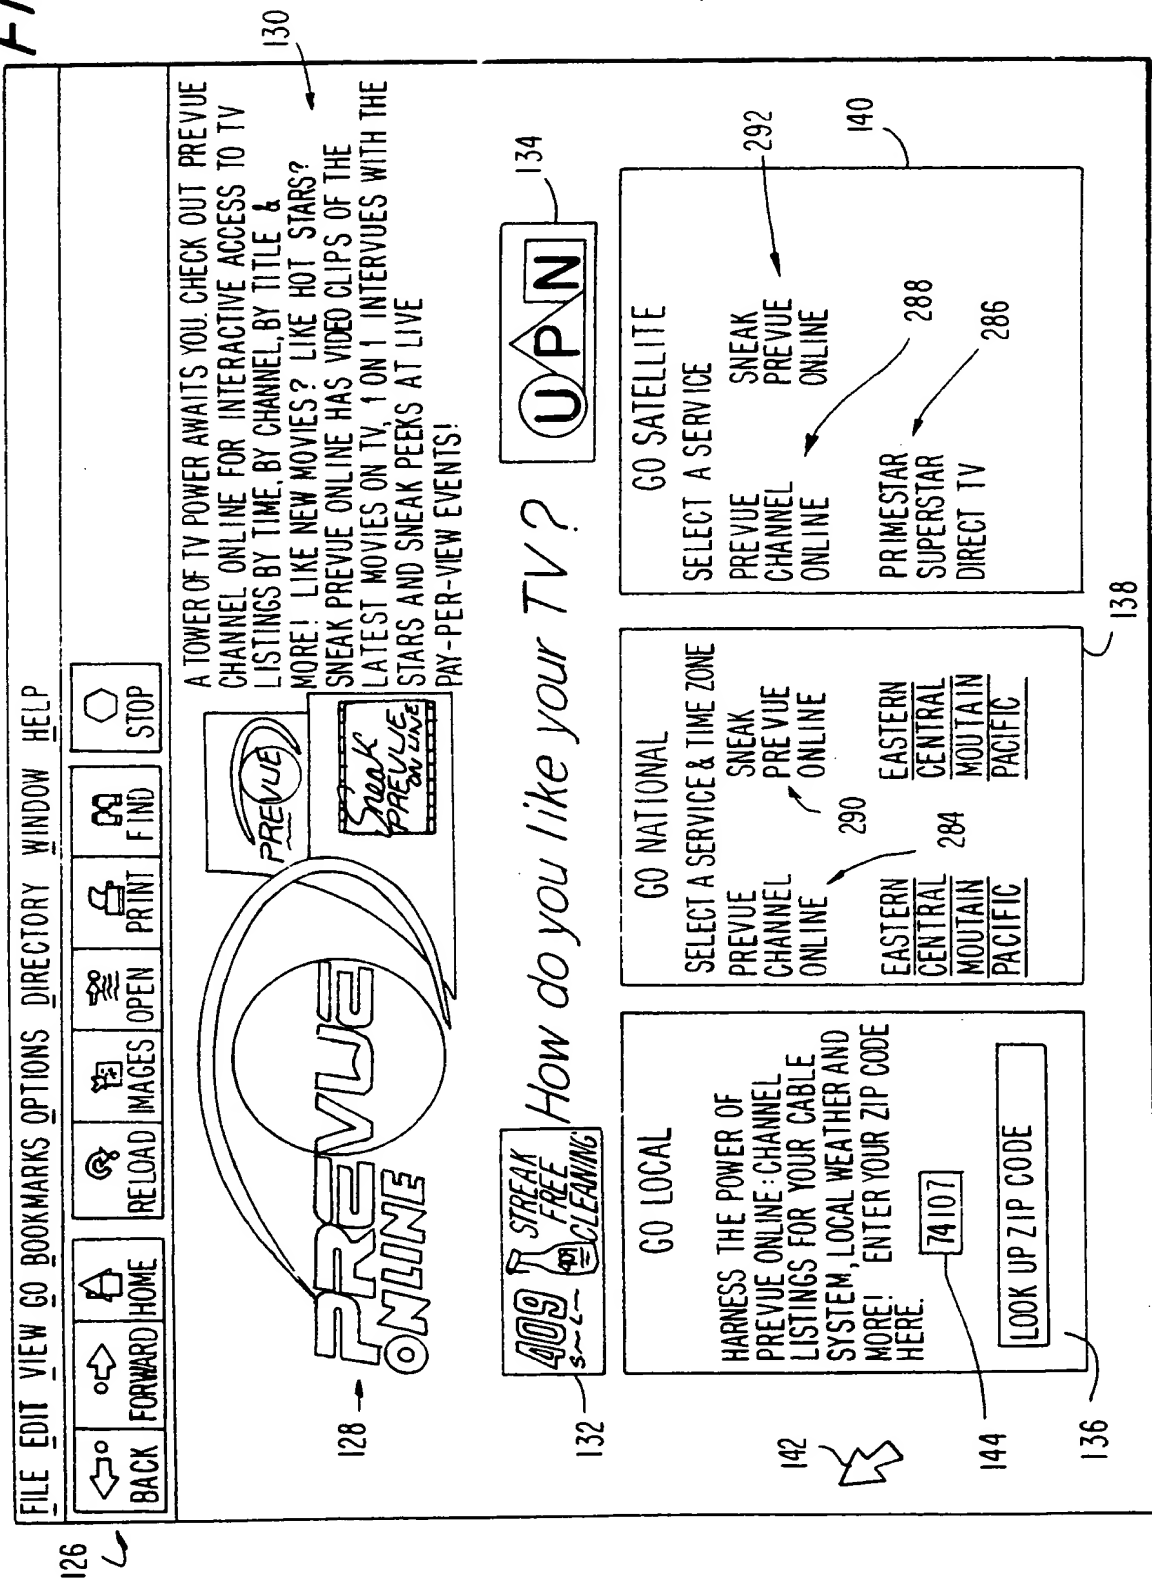 FI
FILE EDIT VIEW GO BOOKMARKS OPTIONS DIRECTORY WINDOW HELP
BACK FORWARD HOME RELOAD IMAGES OPEN PRINT FIND STOP
126
128
PREVUE
ONLINE
PREVUE
Sneak
PREVUE
ONLINE
A TOWER OF TV POWER AWAITS YOU. CHECK OUT PREVUE
CHANNEL ONLINE FOR INTERACTIVE ACCESS TO TV
LISTINGS BY TIME, BY CHANNEL, BY TITLE &
MORE! LIKE NEW MOVIES? LIKE HOT STARS?
SNEAK PREVUE ONLINE HAS VIDEO CLIPS OF THE
LATEST MOVIES ON TV, 1 ON 1 INTERVUES WITH THE
STARS AND SNEAK PEEKS AT LIVE
PAY-PER-VIEW EVENTS!
130
132
409
STREAK
FREE
CLEANING
409
How do you like your TV?
UPN
134
142
144
136
GO LOCAL
HARNESS THE POWER OF
PREVUE ONLINE: CHANNEL
LISTINGS FOR YOUR CABLE
SYSTEM, LOCAL WEATHER AND
MORE! ENTER YOUR ZIP CODE
HERE.
74107
LOOK UP ZIP CODE
GO NATIONAL
SELECT A SERVICE & TIME ZONE
PREVUE
CHANNEL
ONLINE
284
EASTERN
CENTRAL
MOUTAIN
PACIFIC
SNEAK
PREVUE
ONLINE
290
EASTERN
CENTRAL
MOUTAIN
PACIFIC
138
GO SATELLITE
SELECT A SERVICE
PREVUE
CHANNEL
ONLINE
288
SNEAK
PREVUE
ONLINE
292
PRIMESTAR
SUPERSTAR
DIRECT TV
286
140